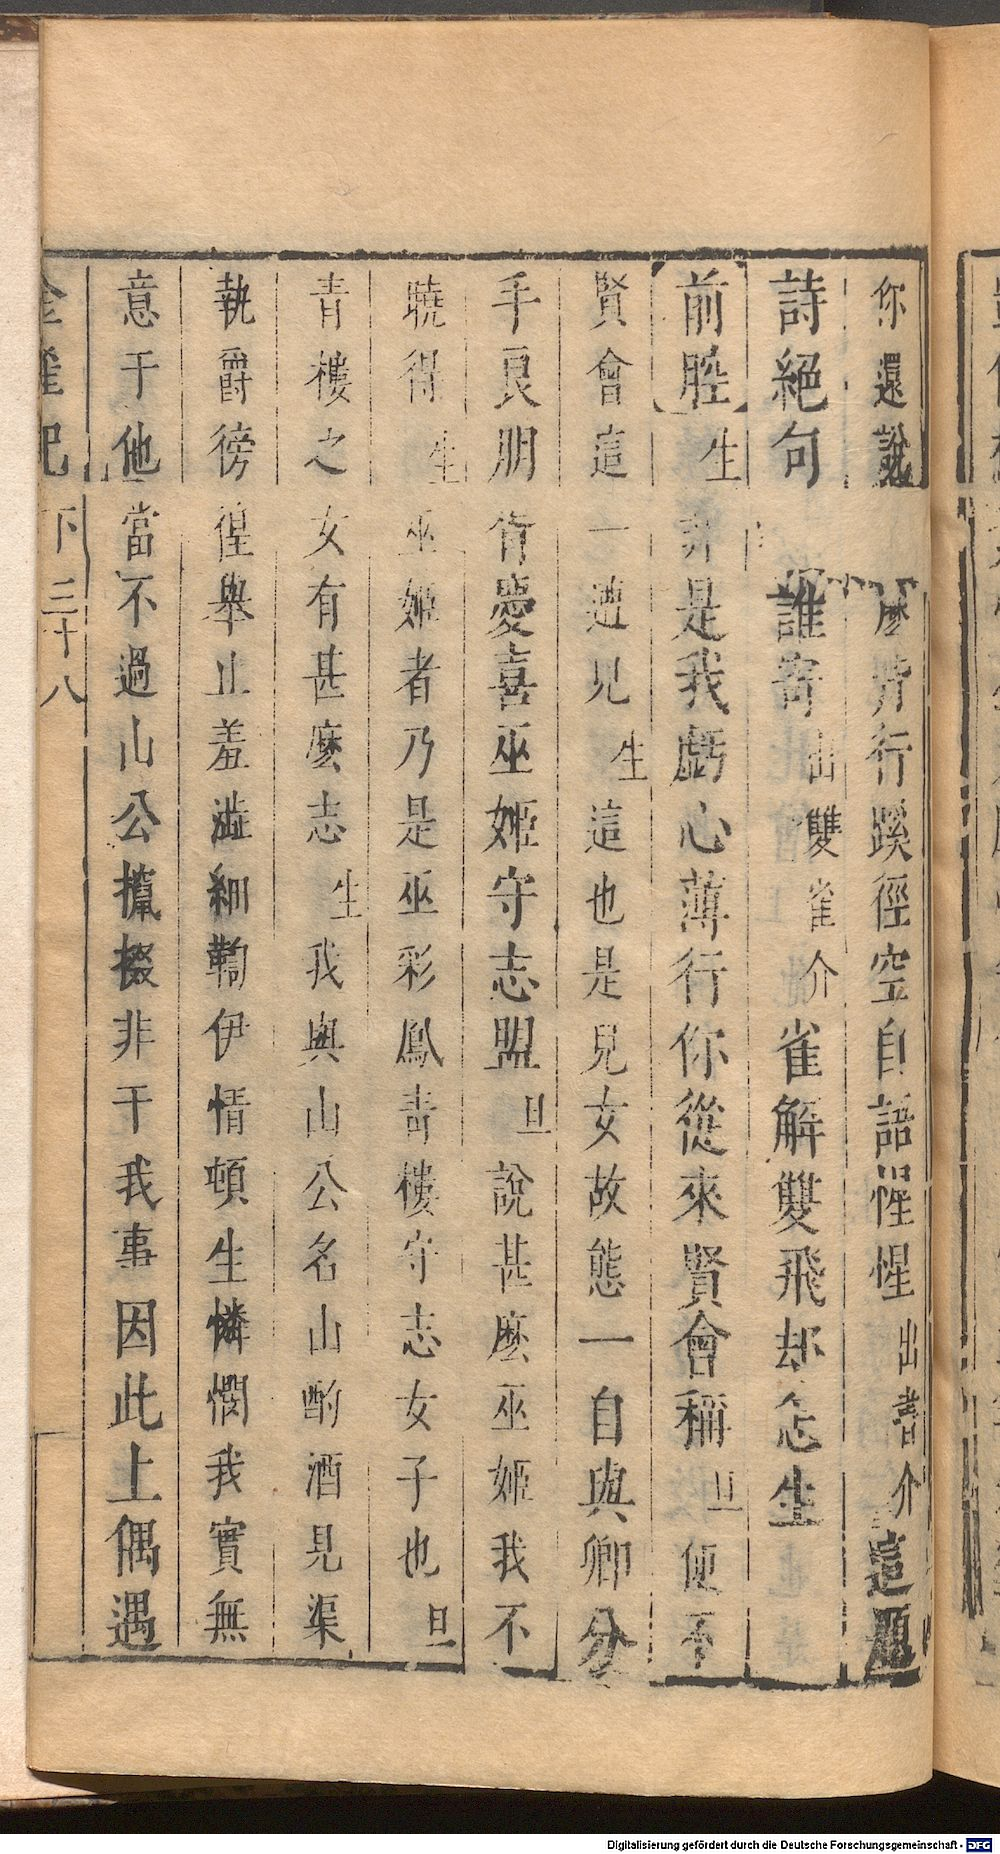 你還說麼背行蹊徑空自語惺惺出書介這題
詩絕句誰寄出雙雀介雀解雙飛却怎生
前腔生非是我虧心薄行你從來賢會稱旦便不
賢會這一遭見生這也是兒女故態一自與卿分
手良朋侑愛喜巫姬守志盟旦說甚麼巫姬我不
曉得生巫姬者乃是巫彩鳳青樓守志女子也旦
青樓之女有甚麼志生我與山公名山酌酒見渠
執爵徬徨舉止羞澁細鞫伊情頓生憐憫我實無
意于他當不過山公攛掇非干我事因此上偶遇
金雀記 下 三十八
Digitalisierung gefördert durch die Deutsche Forschungsgemeinschaft - DFG